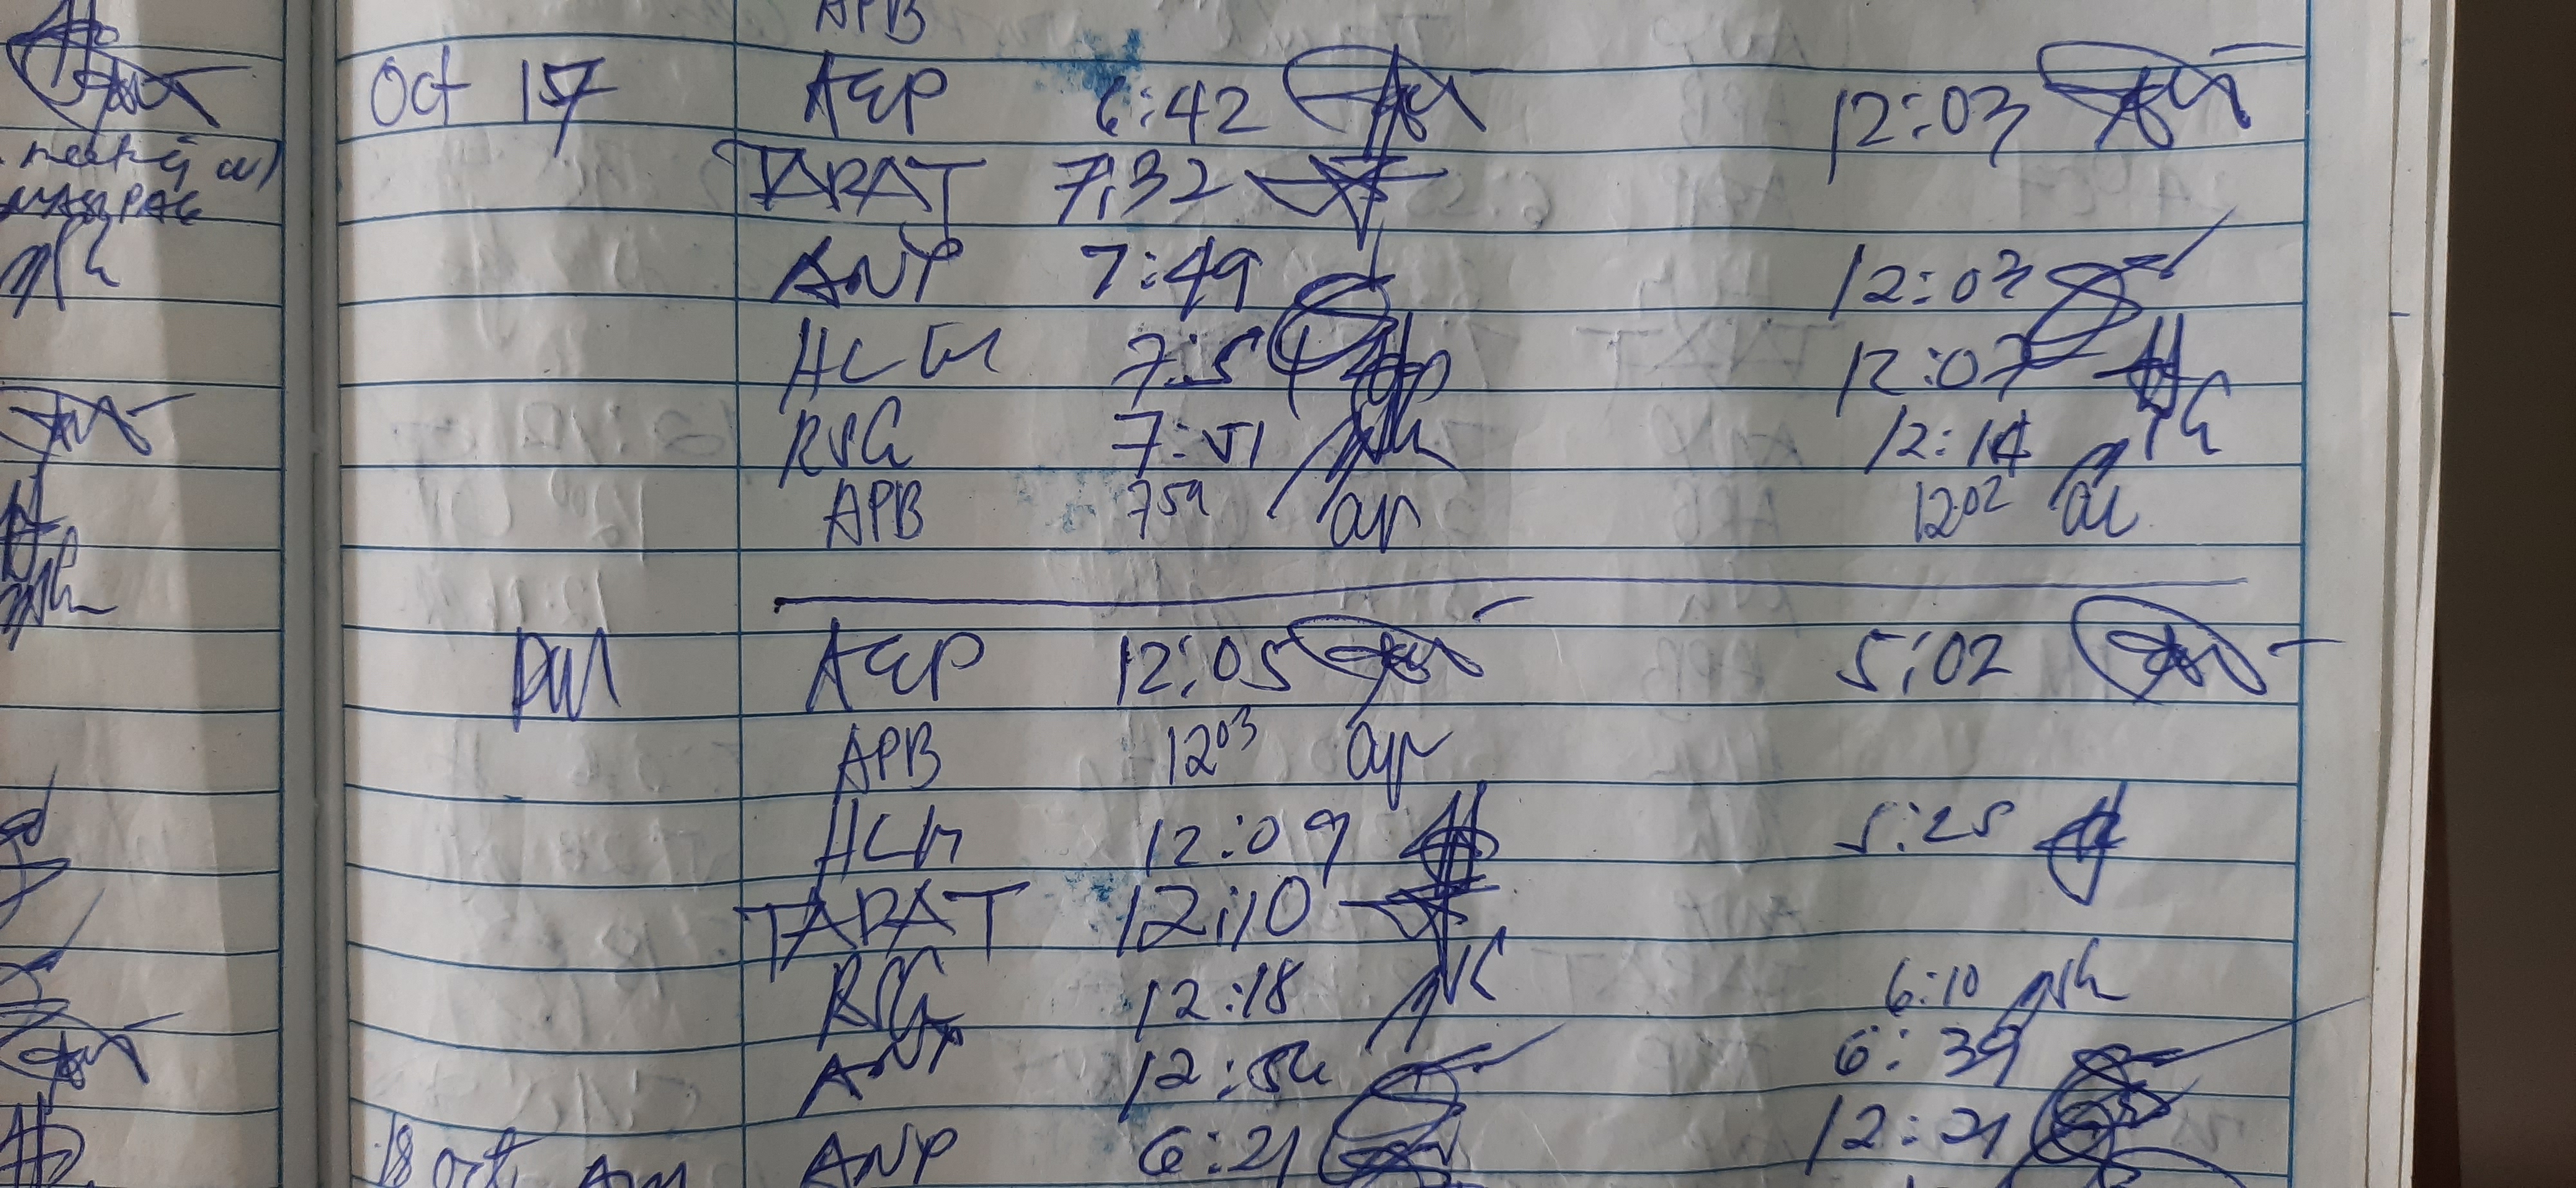 APB
Oct 17 AEP 6:42 12:03
TAPAT 7:32
ANP 7:49 12:03
HCM 7:51 12:07
RSG 7:51 12:14
APB 759 1202
PM AEP 12:05 5:02
APB 1203
HCM 12:09 5:25
TAPAT 12:10
RSG 12:18 6:10
ANP 12:54 6:39
18 Oct Am ANP 6:21 12:21
meeting w/